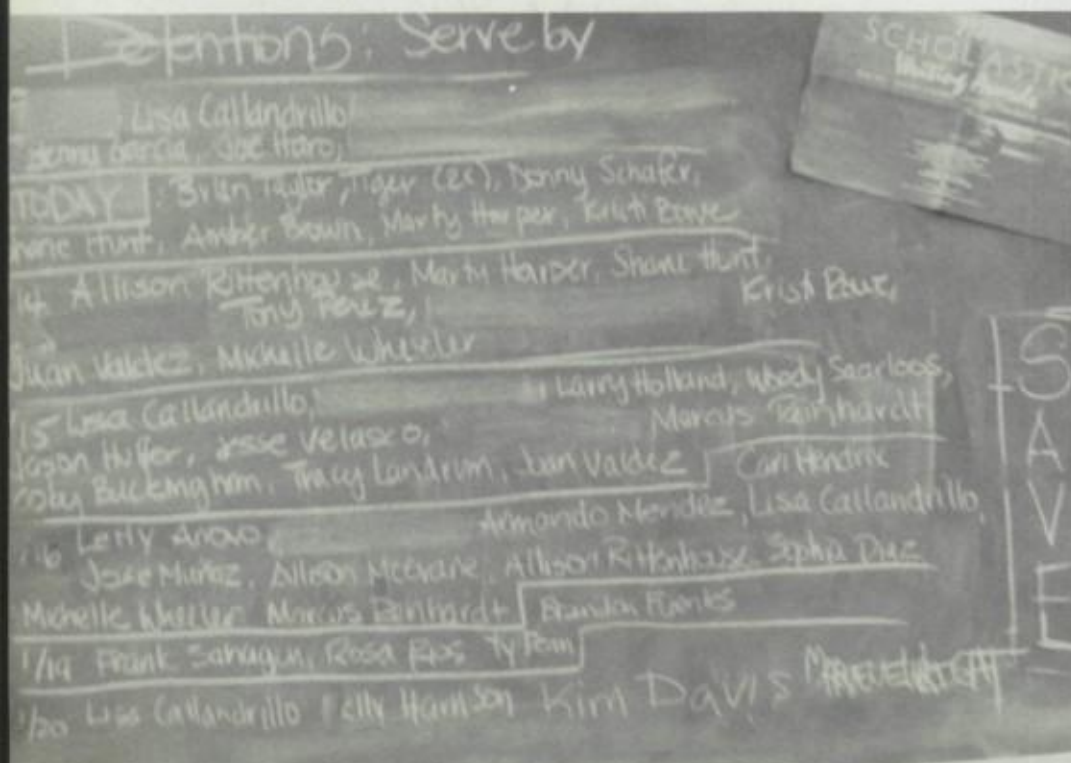 Detentions: Serve by
Lisa Callandrillo
Jenny Garcia, Joe Haro,
TODAY : Brian Taylor, Tiger (2x), Donny Schafer,
hane Hunt, Amber Brown, Marty Harper, Kristi Rowe
14 Allison Rittenhouse, Marty Harper, Shane Hunt,
Tony Perez, Kristi Rowe,
Juan Valdez, Michelle Wheeler
15 Lisa Callandrillo, Larry Holland, Woody Saarloos,
Jason Huffer, Jesse Velasco, Marcus Reinhardt
oby Buckingham, Tracy Landrum, Juan Valdez Cari Hendrix
16 Letty Armando Mendez, Lisa Callandrillo,
Jose Munoz, Allison Allison Rittenhouse, Sophia Diaz
Michelle Wheeler Marcus Reinhardt Brandon Fuentes
1/19 Frank Sahagun, Rosa Rios, Ty Penn
1/20 Lisa Callandrillo Kelly Harrison Kim Davis
SCHOLASTIC
SAVE